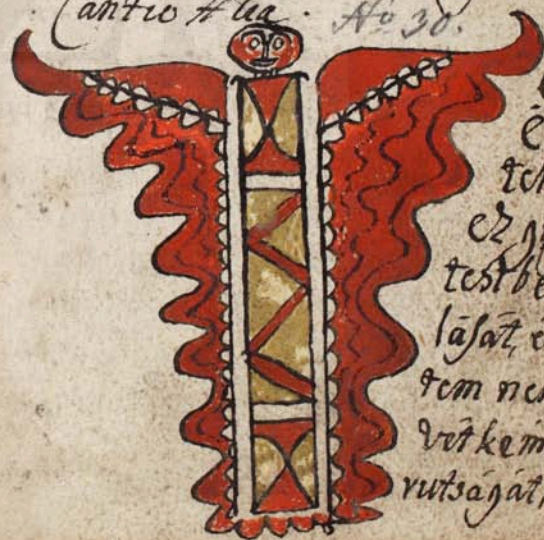 Cantio Alia. No 30.
é
tel
ez
testbe
lásat, é
tem nem
vétkeim
rutságát,